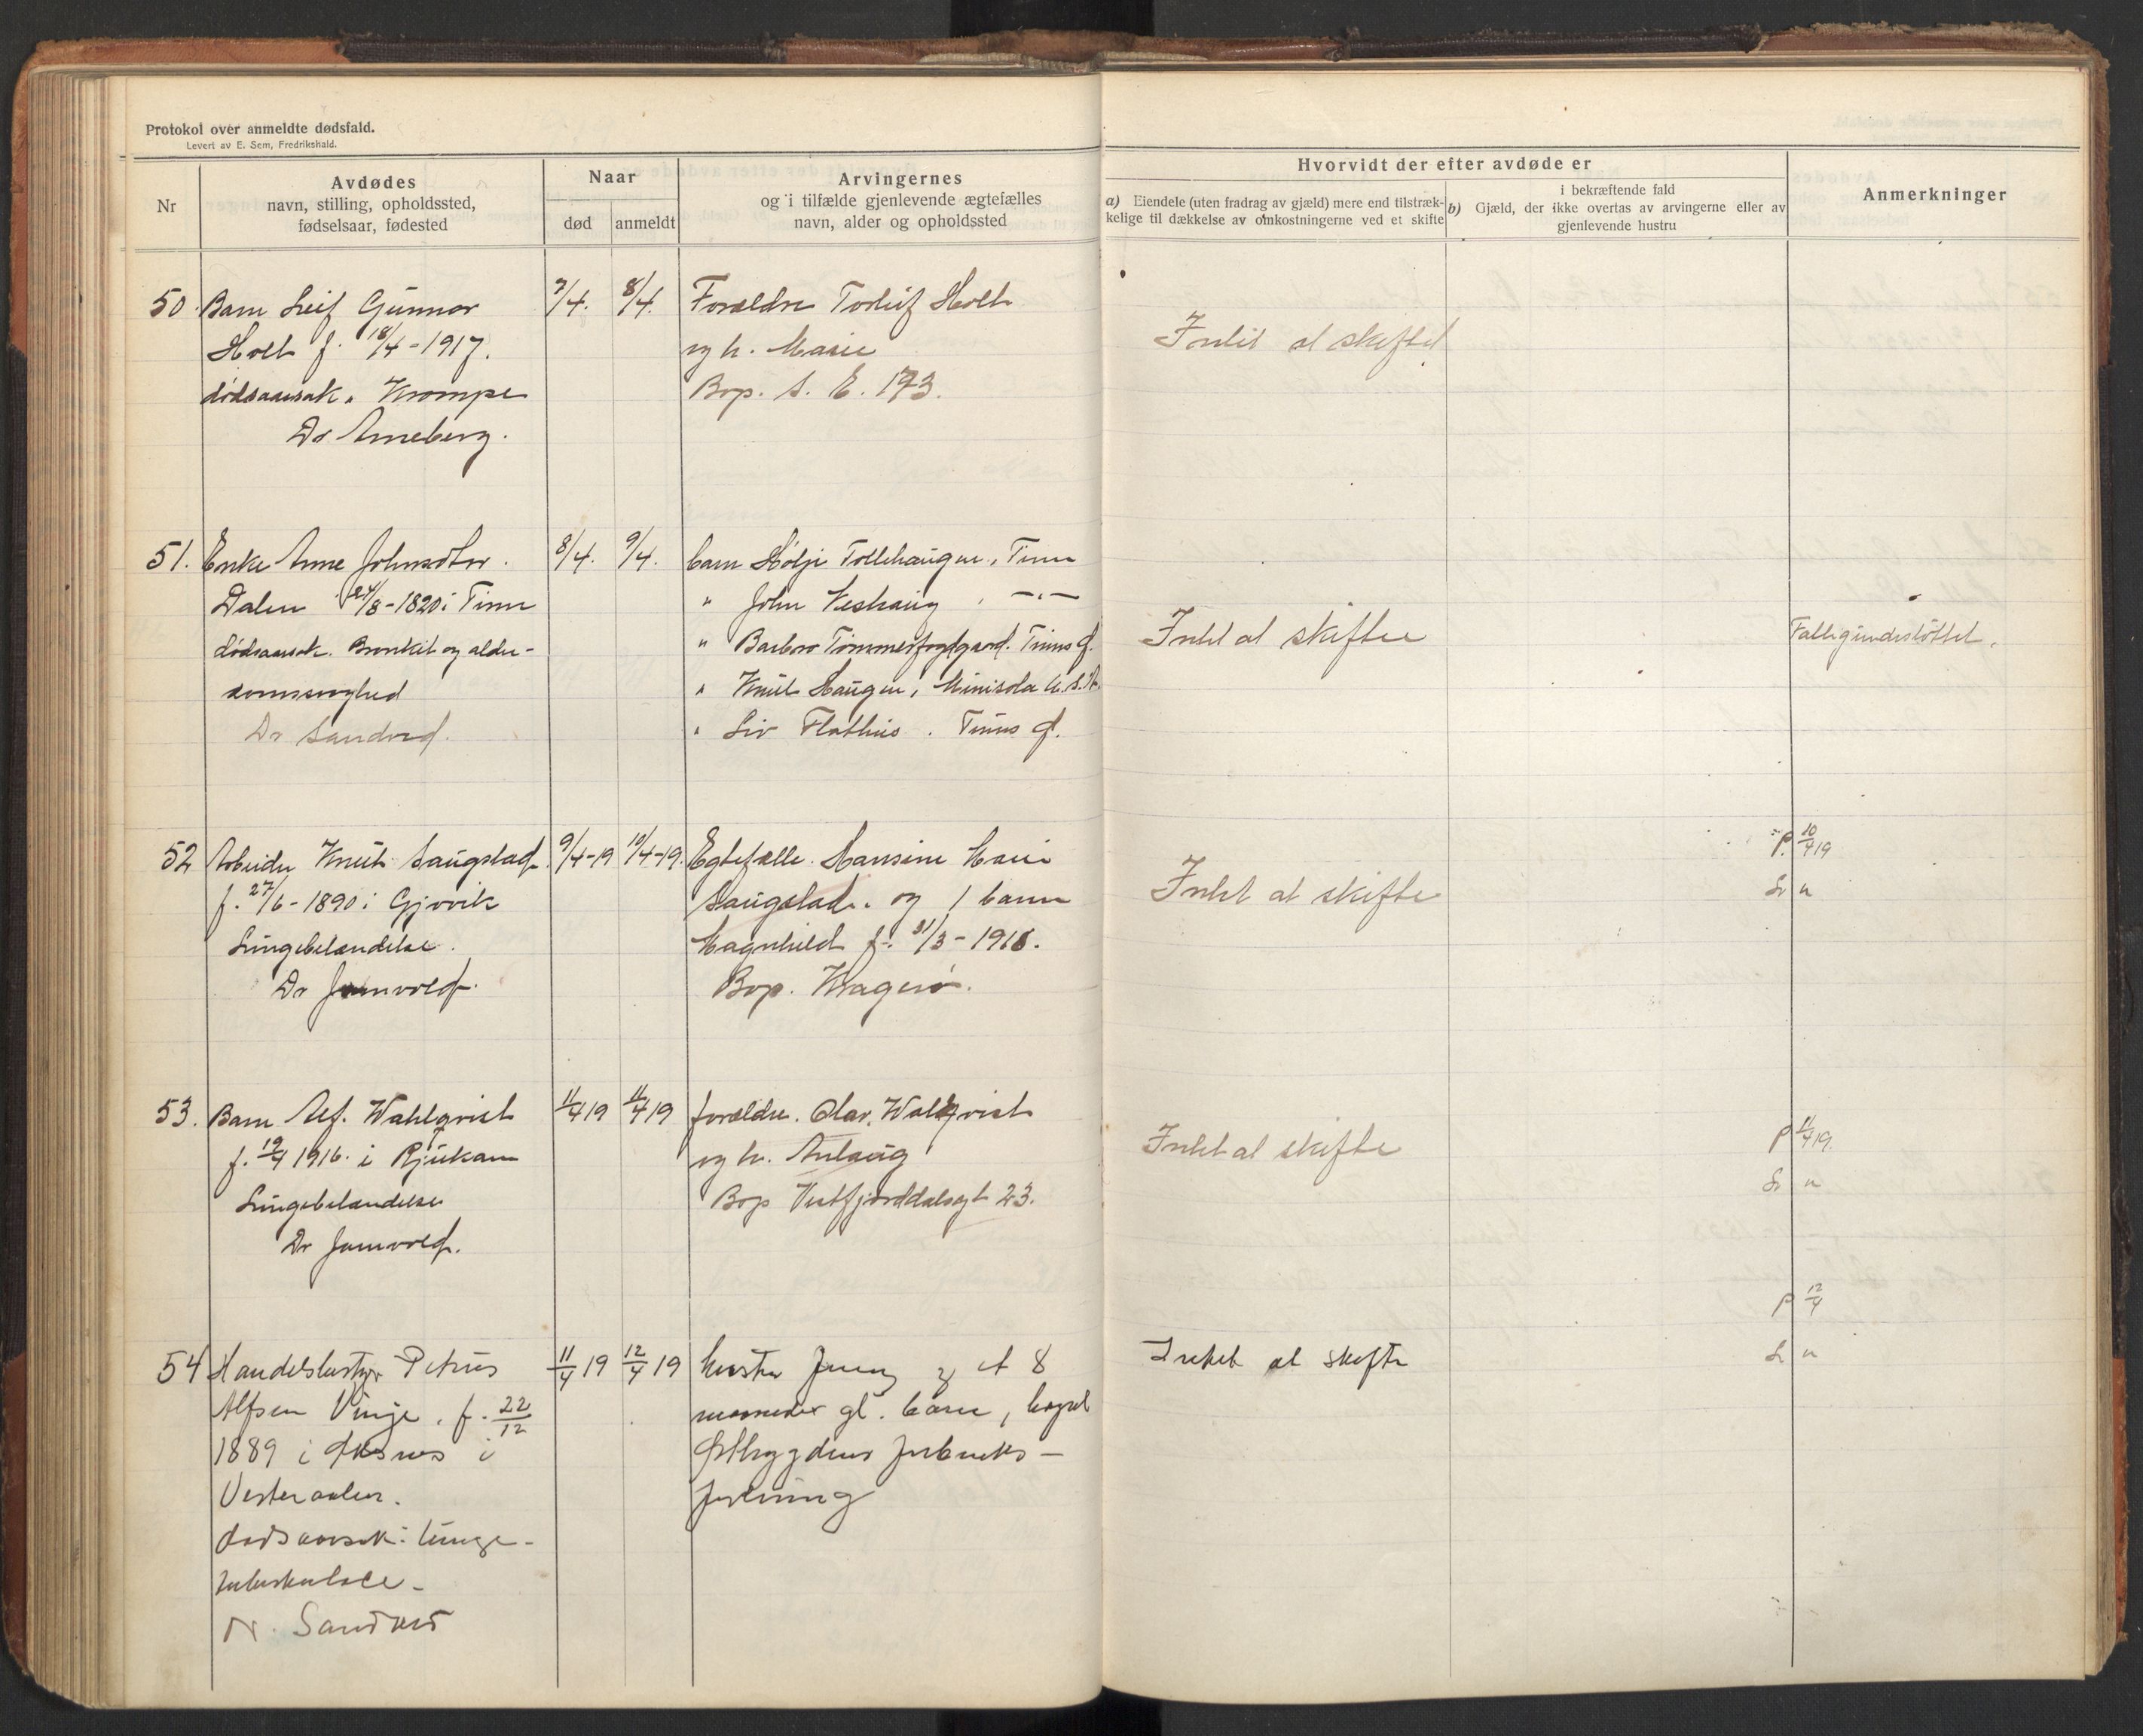 Protokol over anmeldte dødsfald.
Levert av E. Sem, Fredrikshald.
Nr
Avdødes
navn, stilling, opholdssted,
fødselsaar, fødested
Naar
død
anmeldt
Arvingernes
og i tilfælde gjenlevende ægtefælles
navn, alder og opholdssted
Hvorvidt der efter avdøde er
a) Eiendele (uten fradrag av gjæld) mere end tilstræk-
kelige til dækkelse av omkostningerne ved et skifte
b) i bekræftende fald
Gjæld, der ikke overtas av arvingerne eller av
gjenlevende hustru
Anmerkninger
50. Barn Leif Gunnar 7/4. 8/4. Forældre Torleif Holt
Holt f. 18/4-1917. og h. Marie Intet at skifte
dødsaarsak. Krampe Bop. S. E. 173.
Dr Arneberg.
51. Enke Anne Johnsdtr. 8/4. 9/4. barn Hølje Tollehaugen, Tinn
Dalen 24/8-1820 i Tinn " John
dødsaarsak. Bronkit og alder- " Barbro Intet at skifte Fattigunderstöttet.
domssvaghed " Knut Haugen, U.S.A.
Dr Sandved. " Liv Flathus. Tinns
52 Arbeider Knut Saugstad 9/4-19 10/4-19. Egtefælle. Hansine Marie P. 10/4 19
f. 27/6-1890 i Gjøvik Saugstad. og 1 barn Intet at skifte "
Lungebetændelse. Magnhild f. 31/3-1918.
Dr Jamvold. Bop. Kragerö.
53. Barn Alf. Wahlqvist 11/4 19 11/4 19 forældre. Olav. Wahlqvist P 11/4 19.
f. 19/4 1916. i Rjukan og h. Aslaug Intet at skifte "
Lungebetændelse Bop Vestfjorddalsgt 23.
Dr Jamvold.
P 12/4
54 Handelsbestyr Petrus 11/4 19 12/4 19 hustru Jenny og et 8 Intet at skifte "
Alfsen Vinje. f. 22/12 maaneder gl. barn, bopæl
1889 i Øksnes i Østbygdens forbruks-
Vesteraalen. forening
dødsaarsak: lunge-
tuberkulose-
Dr. Sandved